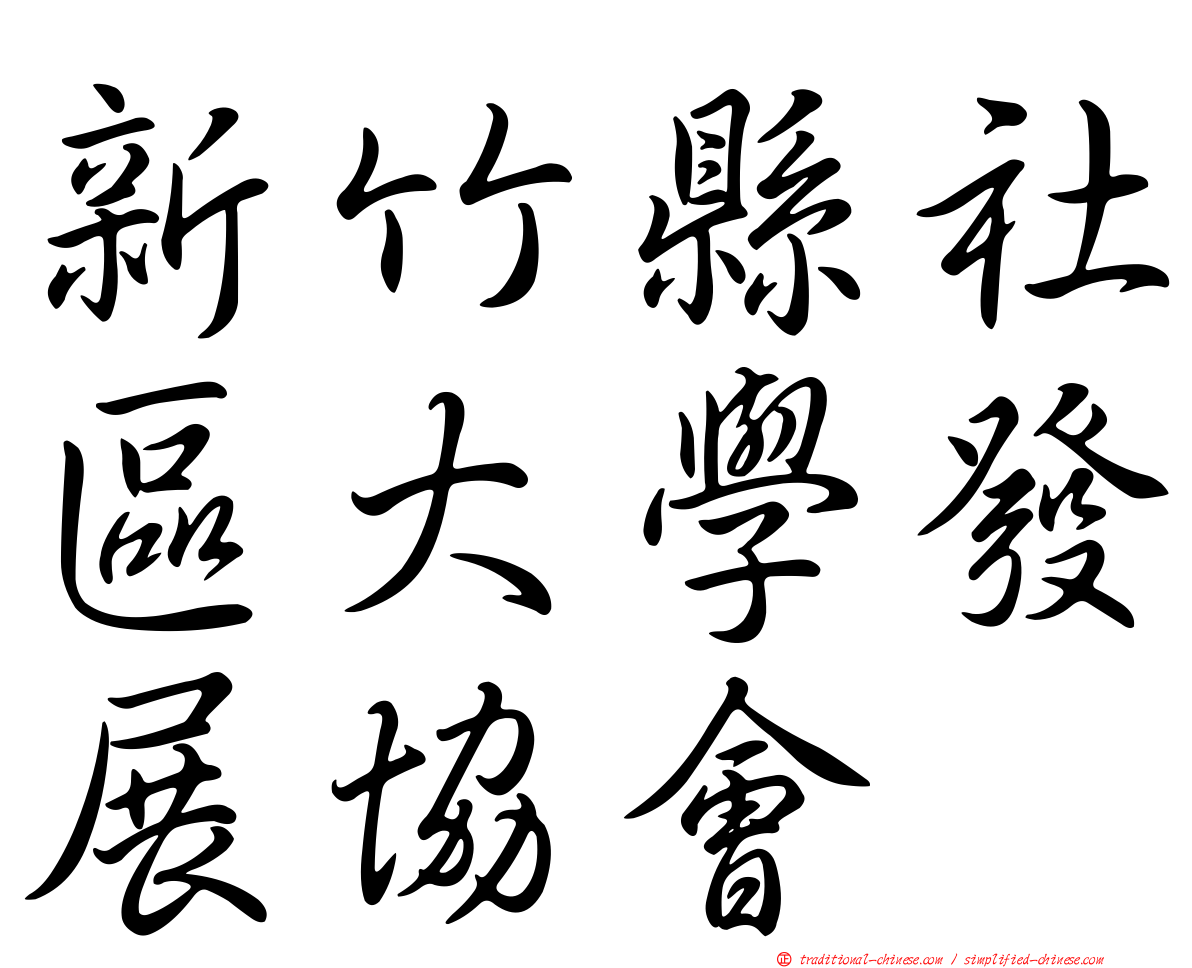 新竹縣社
區大學發
展協會
㊣ traditional-chinese.com / simplified-chinese.com